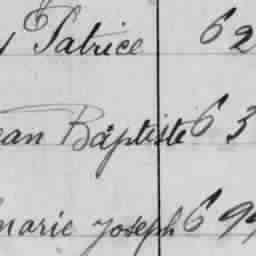 Patrice 62
ean Baptiste 63
marie Joseph 699